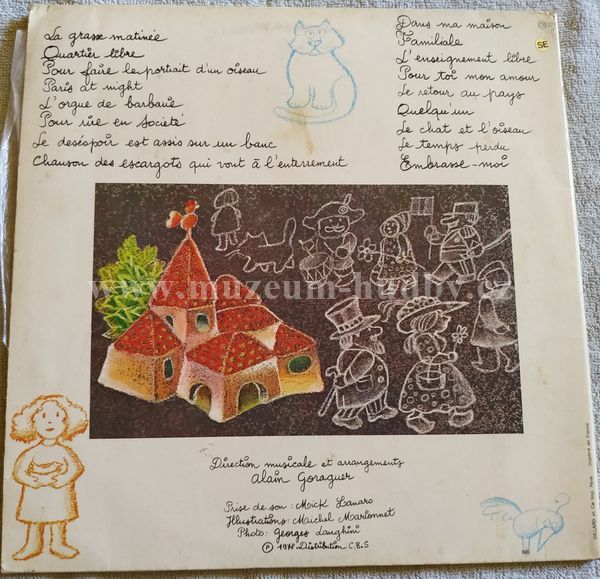 La grasse matinée
Quartier libre
Pour faire le portrait d'un oiseau
Paris at night
L'orgue de barbarie
Pour rire en société
Le désespoir est assis sur un banc
Chanson des escargots qui vont à l'enterrement
Dans ma maison
Familiale
L'enseignement libre
Pour toi mon amour
Le retour au pays
Quelqu'un
Le chat et l'oiseau
Le temps perdu
Embrasse-moi
SE
www.muzeum-hudby.cz
Direction musicale et arrangements
Alain Goraguer
Prise de son : Mick Lanaro
Illustrations : Michel Marionnet
Photo : Georges Langhini
℗ 1977 Distribution C.B.S
DILLARD et Cie Imp. Paris Imprimé en France